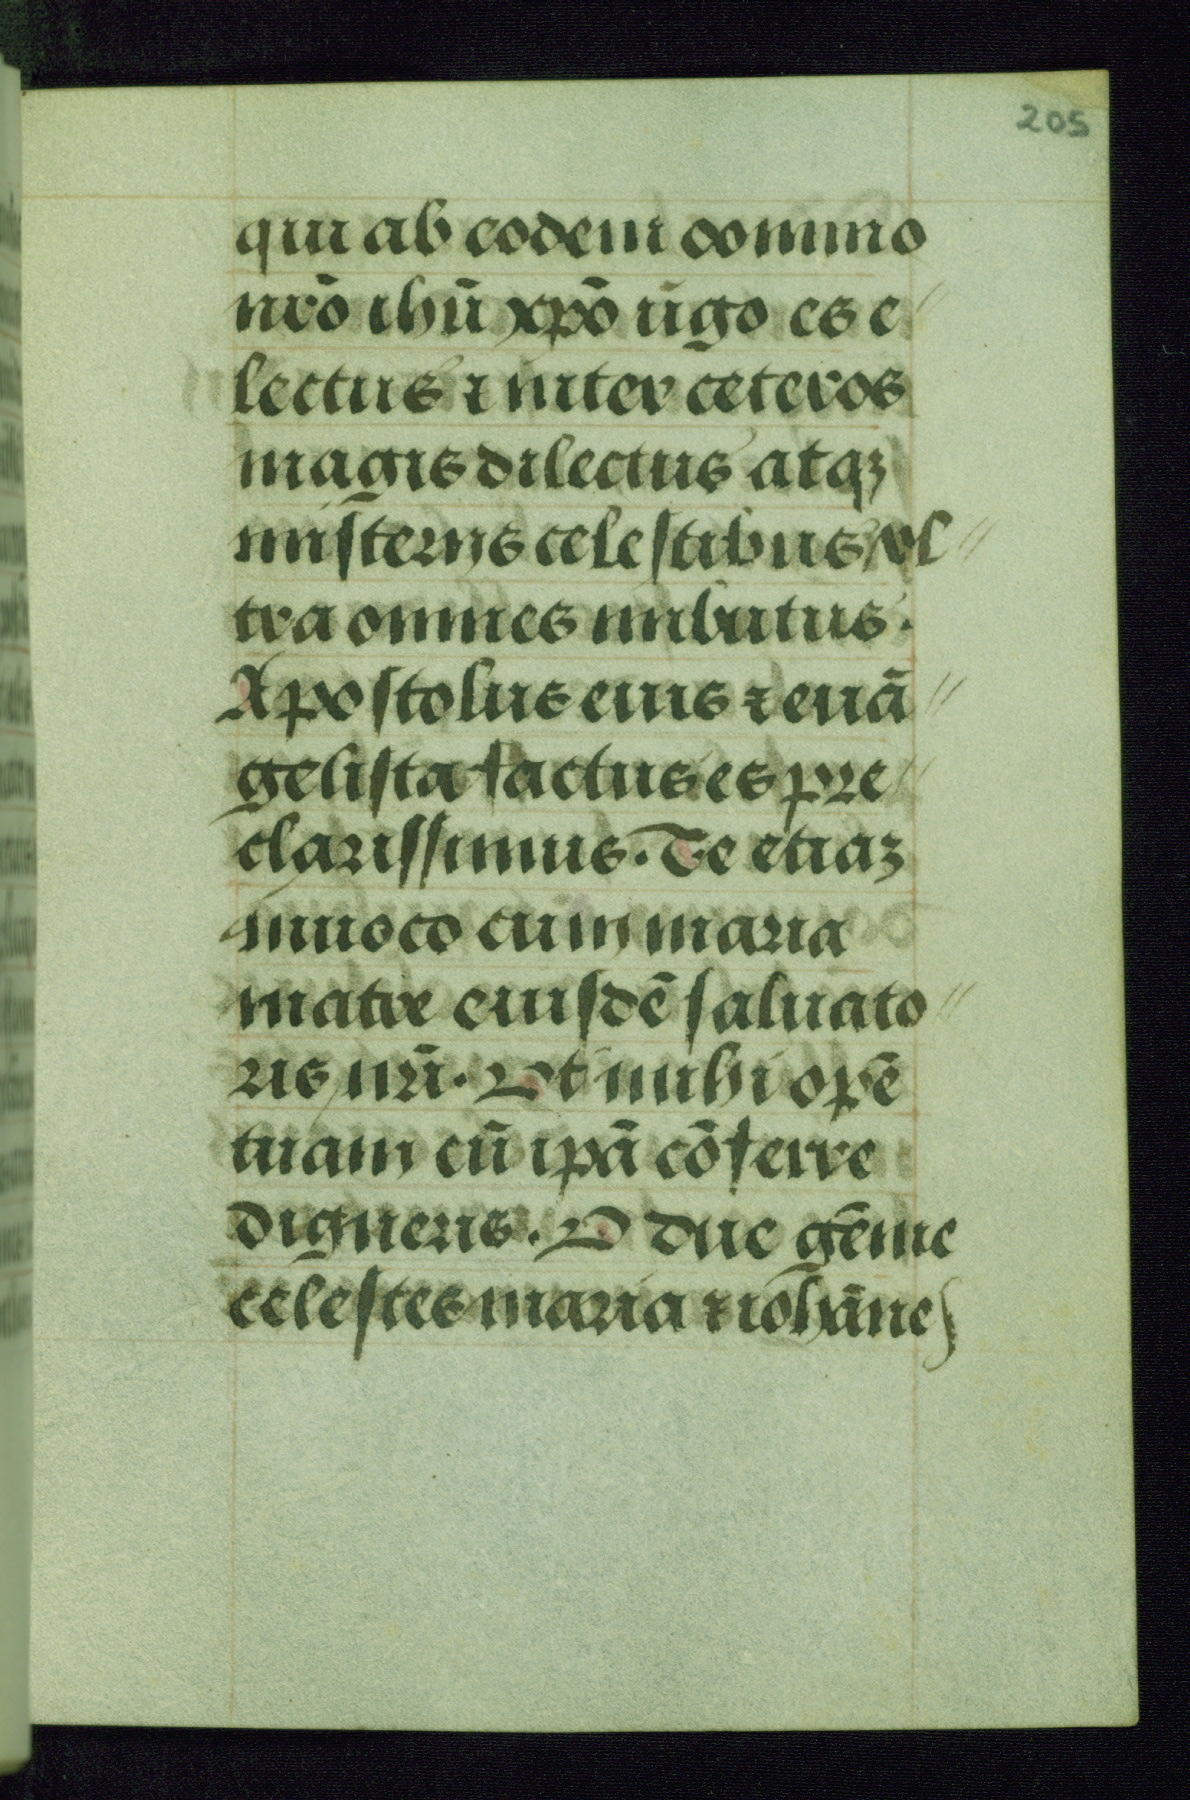 205
qui ab eodem domino
nr̄o ihū xp̄o ūgo es e〃
lectus ⁊ inter ceteros
magis dilectus atqꝫ
misterijs celestibus vl〃
tra omnes imbutus.
Apostolus eius ⁊ euā〃
gelista factus es pre〃
clarissimus. Te etiaꝫ
inuoco cum maria
matre eiusdē saluato〃
ris nr̄i. Vt mihi opē
tuam cū ip̄a cōferre
digneris. O due gēme
celestes maria ⁊ iohānes